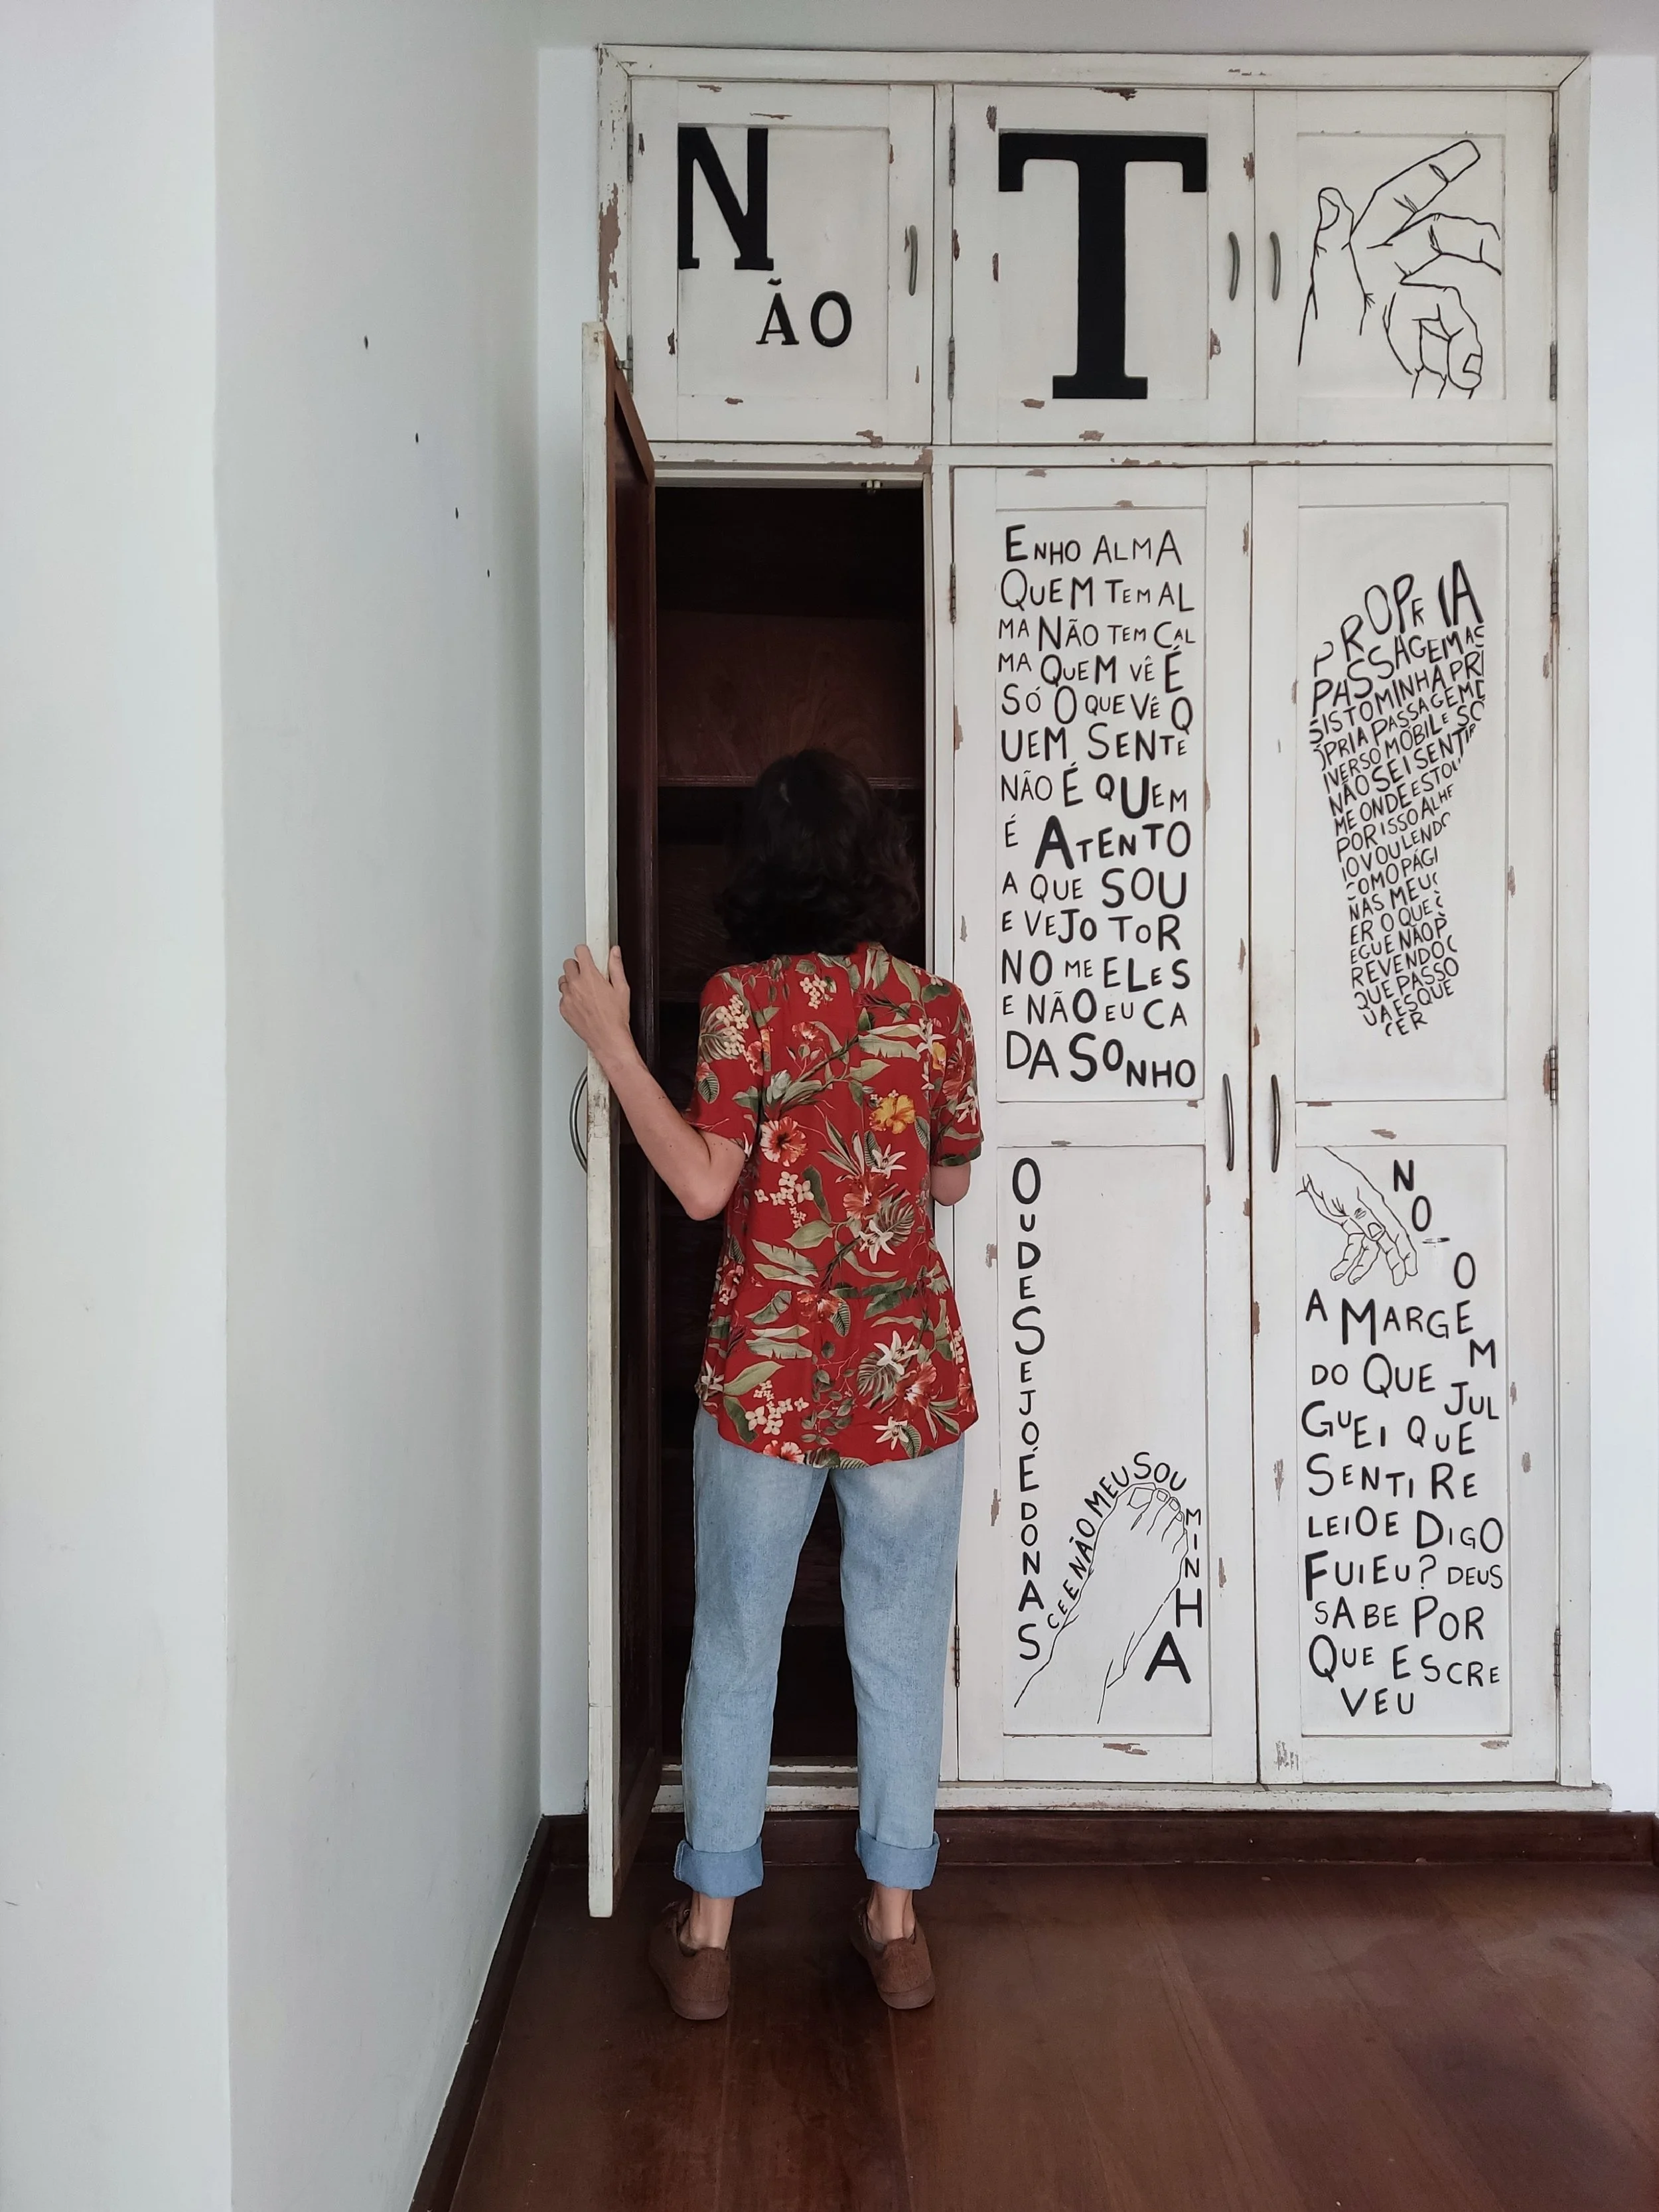 N
ÃO
T
ENHO ALMA
QUEM TEM AL
MA NÃO TEM CAL
MA QUEM VÊ É
SÓ O QUE VÊ Q
UEM SENTE
NÃO É QUEM
É ATENTO
A QUE SOU
E VEJO TOR
NO ME ELES
E NÃO EU CA
DA SONHO
OU DESEJO É DO NAS
CE E NÃO MEU SOU
MINHA
PROPRIA
PASSAGEM AS
SISTO MINHA PRÓ
PRIA PASSAGEM D
IVERSO MOBIL E SO
NÃO SEI SENTIR
ME ONDE ESTOU
POR ISSO ALHE
IO VOU LENDO
COMO PÁGI
NAS MEU S
ER O QUE S
EGUE NÃO P
REVENDO O
QUE PASSO
U A ESQUE
CER
NO
TO
A MARGEM
DO QUE JUL
GUEI QUE
SENTI RE
LEIO E DIGO
FUI EU? DEUS
SABE POR
QUE ESCRE
VEU